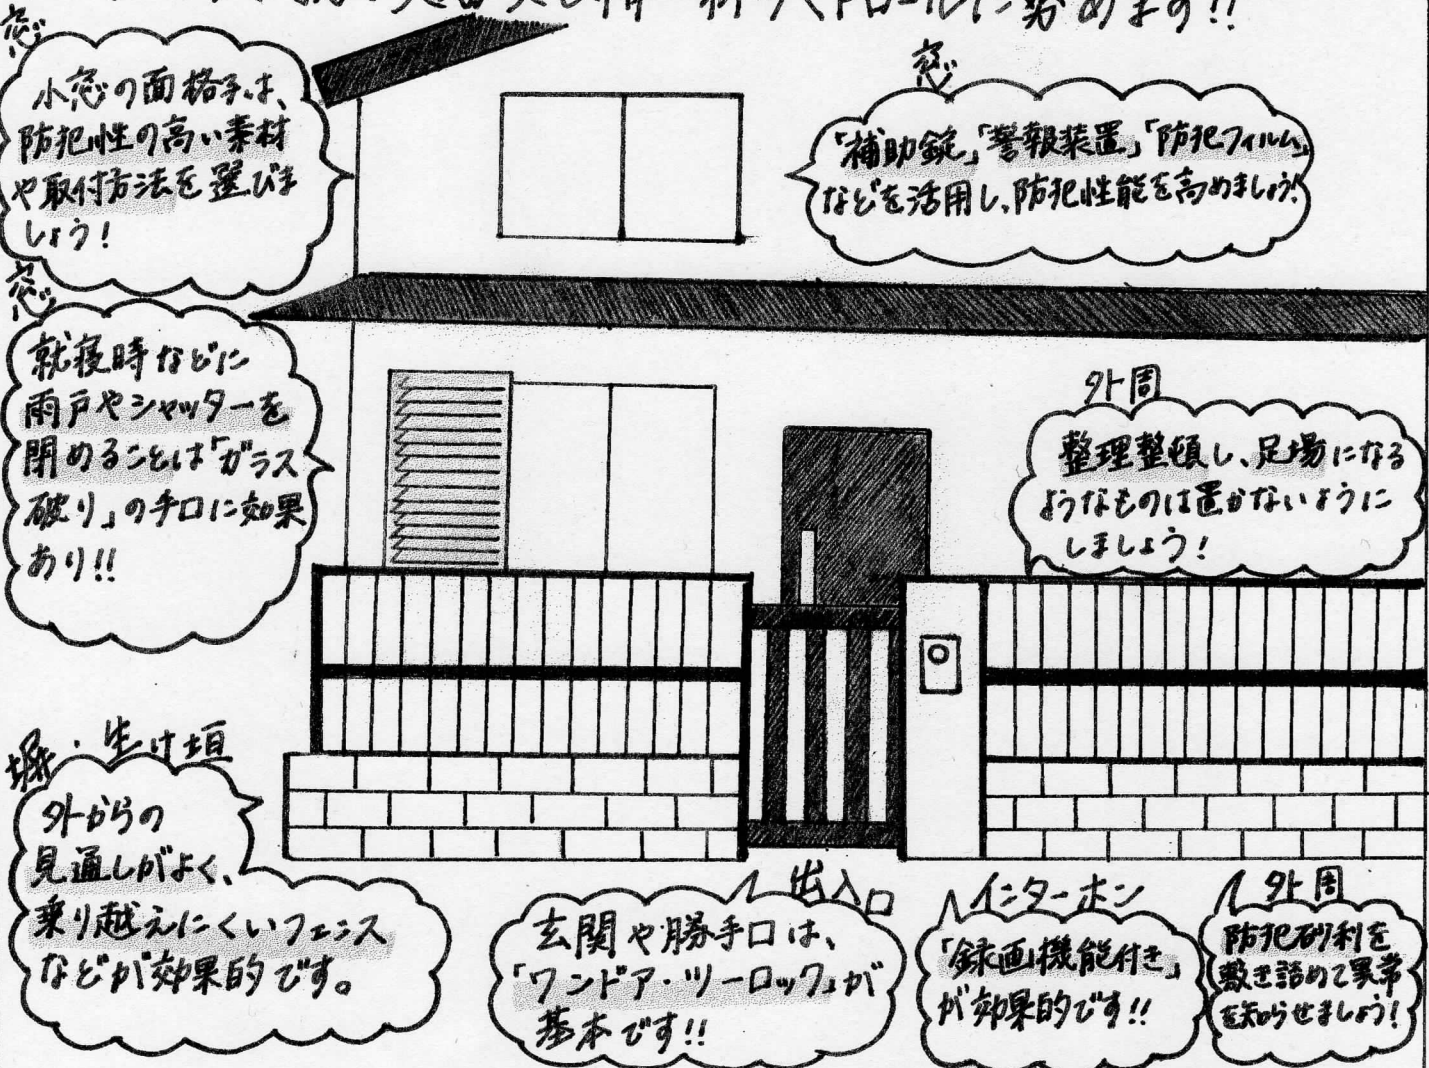 パトロールに努めます!!
窓
小窓の面格子は、
防犯性の高い素材
や取付方法を選びま
しょう!
窓
「補助錠」「警報装置」「防犯フィルム」
などを活用し、防犯性能を高めましょう!
窓
就寝時などに
雨戸やシャッターを
閉めることは「ガラス
破り」の手口に効果
あり!!
外周
整理整頓し、足場になる
ようなものは置かないように
しましょう!
塀・生け垣
外からの
見通しがよく、
乗り越えにくいフェンス
などが効果的です。
出入口
玄関や勝手口は、
「ワンドア・ツーロック」が
基本です!!
インターホン
「録画機能付き」
が効果的です!!
外周
防犯砂利を
敷き詰めて異常
を知らせましょう!